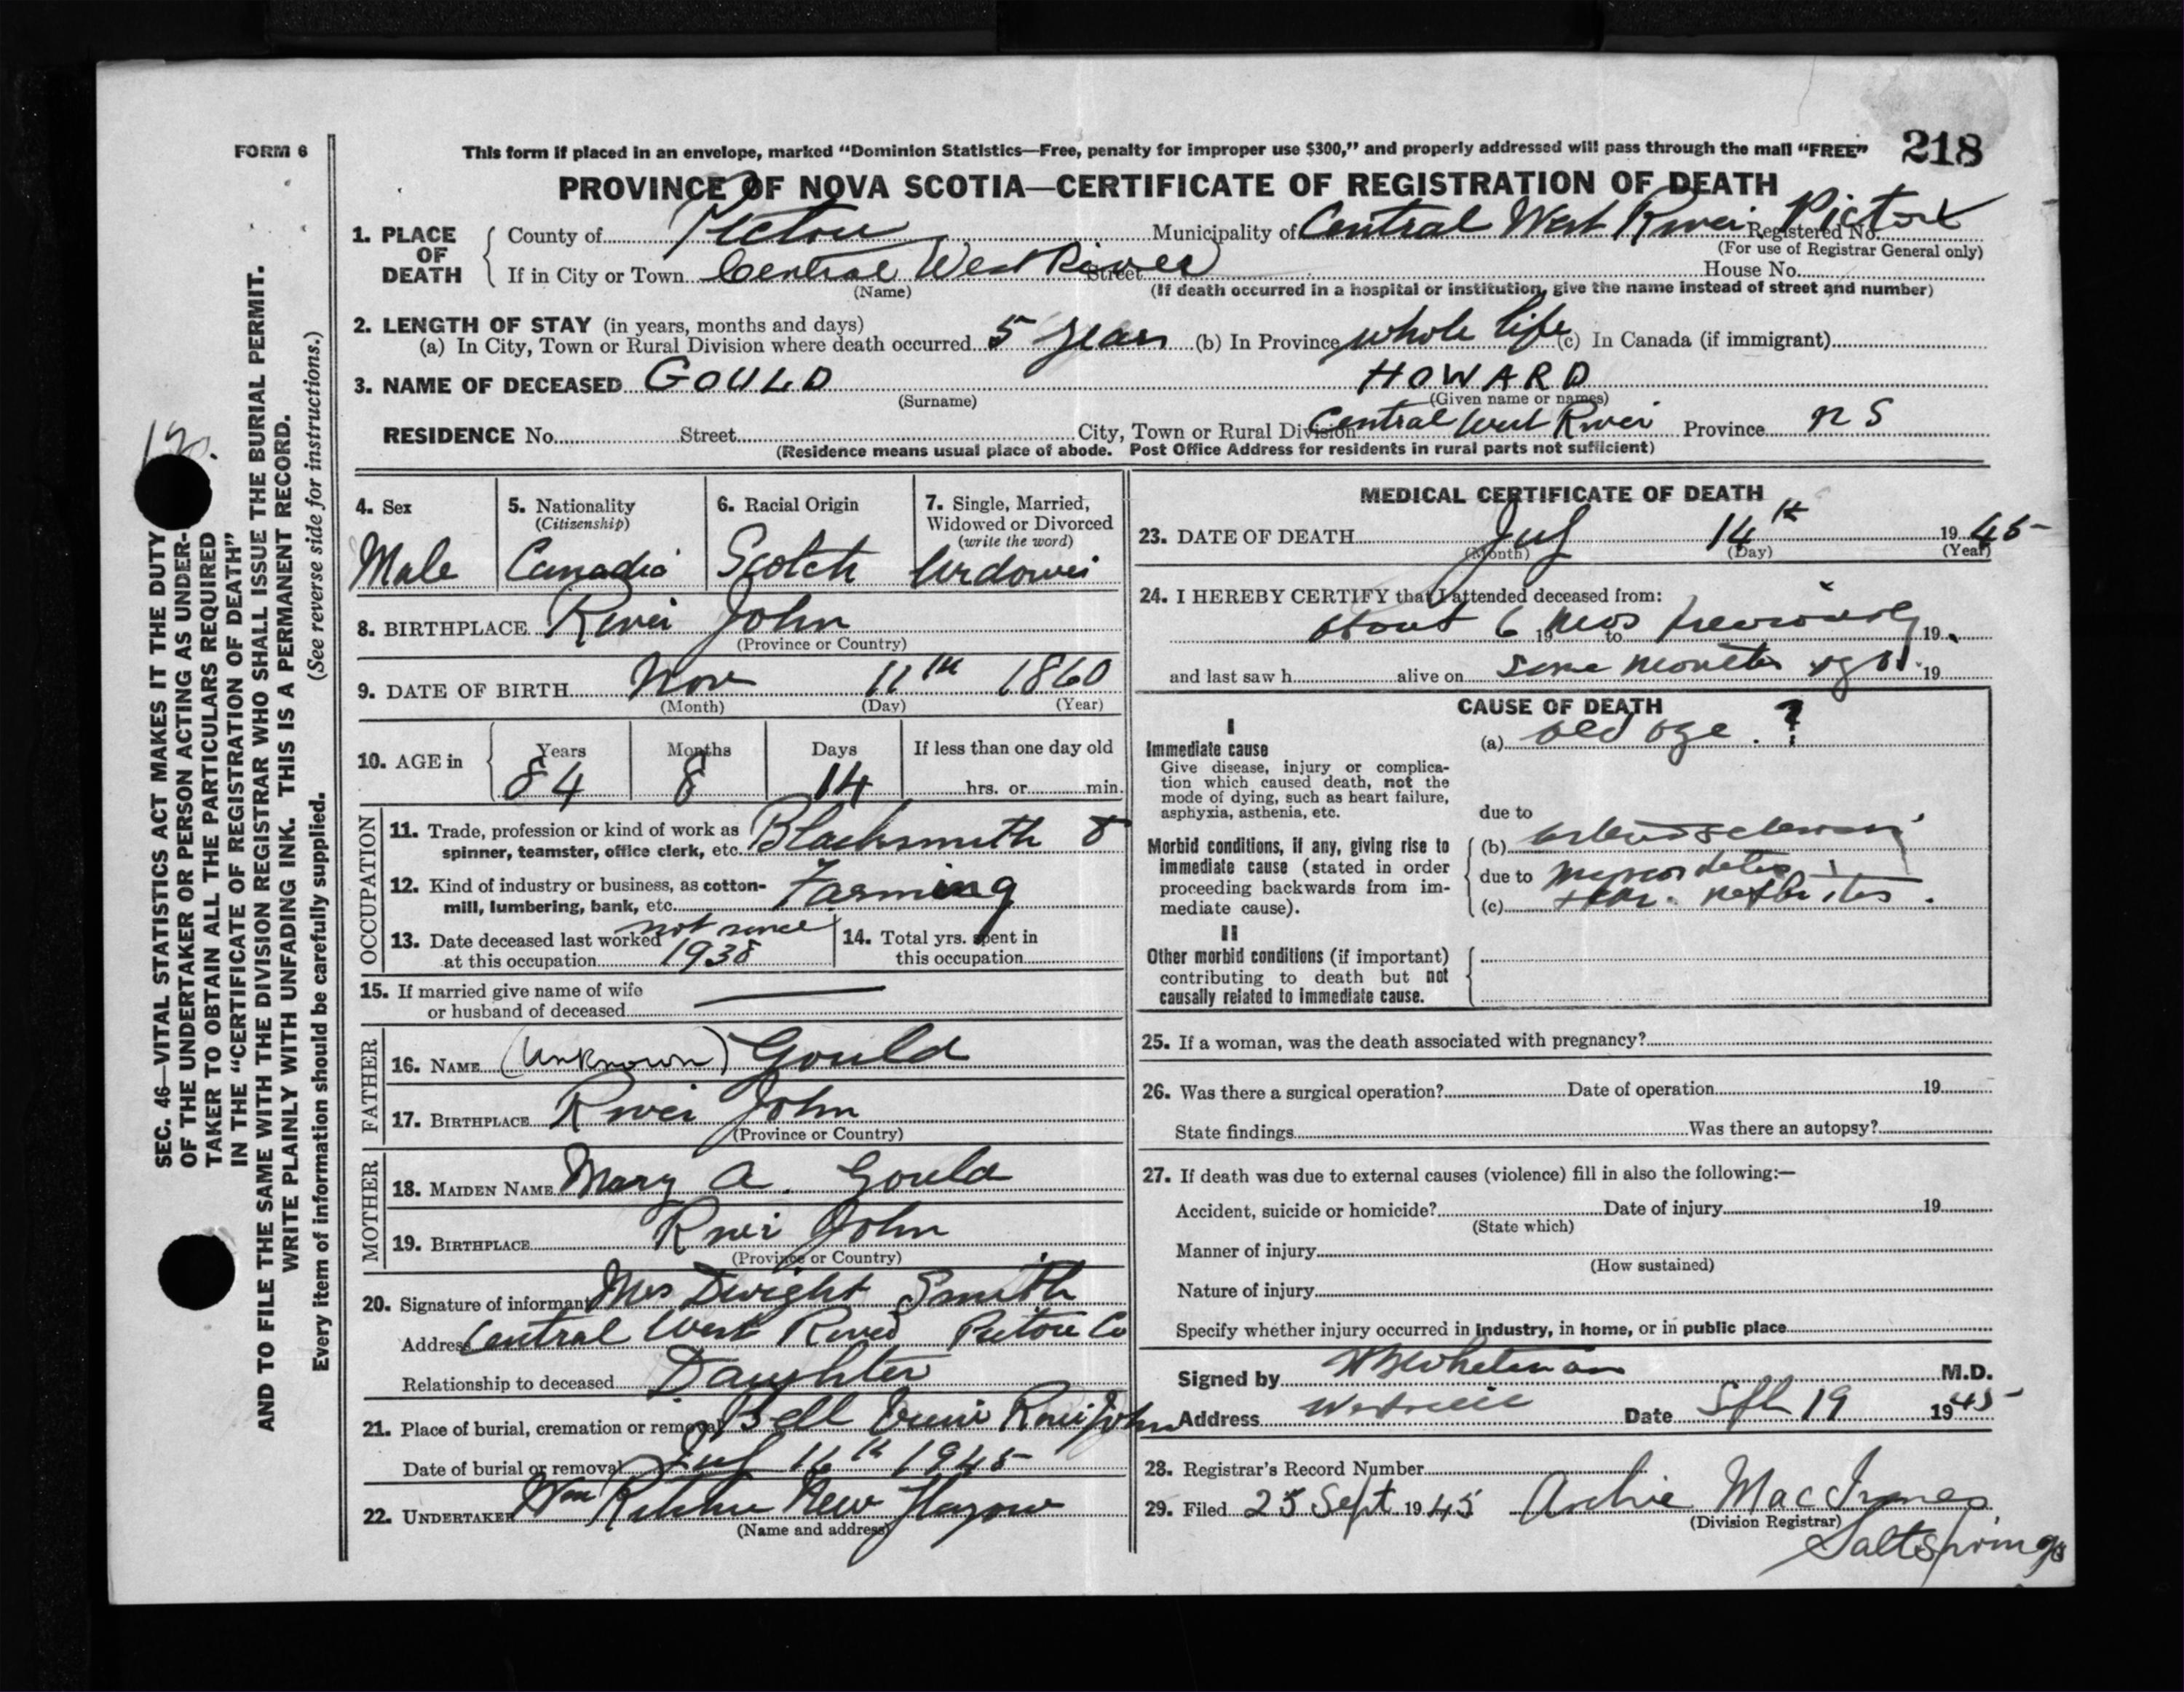 FORM 6
This form if placed in an envelope, marked "Dominion Statistics—Free, penalty for improper use $300," and properly addressed will pass through the mail "FREE"
218
PROVINCE OF NOVA SCOTIA—CERTIFICATE OF REGISTRATION OF DEATH
1. PLACE OF DEATH
County of Pictou Municipality of Central West River Pictou Registered No.
(For use of Registrar General only)
If in City or Town Central West River Street House No.
(Name) (If death occurred in a hospital or institution, give the name instead of street and number)
2. LENGTH OF STAY (in years, months and days)
(a) In City, Town or Rural Division where death occurred 5 years (b) In Province whole life (c) In Canada (if immigrant)
3. NAME OF DECEASED GOULD HOWARD
(Surname) (Given name or names)
RESIDENCE No. Street City, Town or Rural Division Central West River Province N S
(Residence means usual place of abode. Post Office Address for residents in rural parts not sufficient)
SEC. 46—VITAL STATISTICS ACT MAKES IT THE DUTY
OF THE UNDERTAKER OR PERSON ACTING AS UNDER-
TAKER TO OBTAIN ALL THE PARTICULARS REQUIRED
IN THE "CERTIFICATE OF REGISTRATION OF DEATH"
AND TO FILE THE SAME WITH THE DIVISION REGISTRAR WHO SHALL ISSUE THE BURIAL PERMIT.
WRITE PLAINLY WITH UNFADING INK. THIS IS A PERMANENT RECORD.
Every item of information should be carefully supplied. (See reverse side for instructions.)
4. Sex
Male
5. Nationality
(Citizenship)
Canadia
6. Racial Origin
Scotch
7. Single, Married,
Widowed or Divorced
(write the word)
Widower
8. BIRTHPLACE River John
(Province or Country)
9. DATE OF BIRTH Nov 11th 1860
(Month) (Day) (Year)
10. AGE in
Years Months Days If less than one day old
84 8 14 hrs. or min.
OCCUPATION
11. Trade, profession or kind of work as
spinner, teamster, office clerk, etc. Blacksmith &
12. Kind of industry or business, as cotton-
mill, lumbering, bank, etc. Farming
13. Date deceased last worked not since
at this occupation 1938
14. Total yrs. spent in
this occupation
15. If married give name of wife
or husband of deceased
FATHER
16. NAME (Unknown) Gould
17. BIRTHPLACE River John
(Province or Country)
MOTHER
18. MAIDEN NAME Mary A. Gould
19. BIRTHPLACE River John
(Province or Country)
20. Signature of informant Mrs Dwight Smith
Address Central West River Pictou Co
Relationship to deceased Daughter
21. Place of burial, cremation or removal Bell River John
Date of burial or removal July 16th 1945
22. UNDERTAKER Wm New Glasgow
(Name and address)
MEDICAL CERTIFICATE OF DEATH
23. DATE OF DEATH July 14th 1945
(Month) (Day) (Year)
24. I HEREBY CERTIFY that I attended deceased from:
about 6 19 mos to previously 19
and last saw h alive on some months ago 19
CAUSE OF DEATH
I
Immediate cause
Give disease, injury or complica-
tion which caused death, not the
mode of dying, such as heart failure,
asphyxia, asthenia, etc.
(a) old age. ?
due to
Morbid conditions, if any, giving rise to
immediate cause (stated in order
proceeding backwards from im-
mediate cause).
(b) arteriosclerosis
due to myocarditis
(c) nephritis.
II
Other morbid conditions (if important)
contributing to death but not
causally related to immediate cause.
25. If a woman, was the death associated with pregnancy?
26. Was there a surgical operation? Date of operation 19
State findings Was there an autopsy?
27. If death was due to external causes (violence) fill in also the following:—
Accident, suicide or homicide? Date of injury 19
(State which)
Manner of injury
(How sustained)
Nature of injury
Specify whether injury occurred in industry, in home, or in public place
Signed by Whitman M.D.
Address Westville Date Sept 19 1945
28. Registrar's Record Number
29. Filed 25 Sept. 1945 Archie MacInnes
(Division Registrar)
Saltsprings